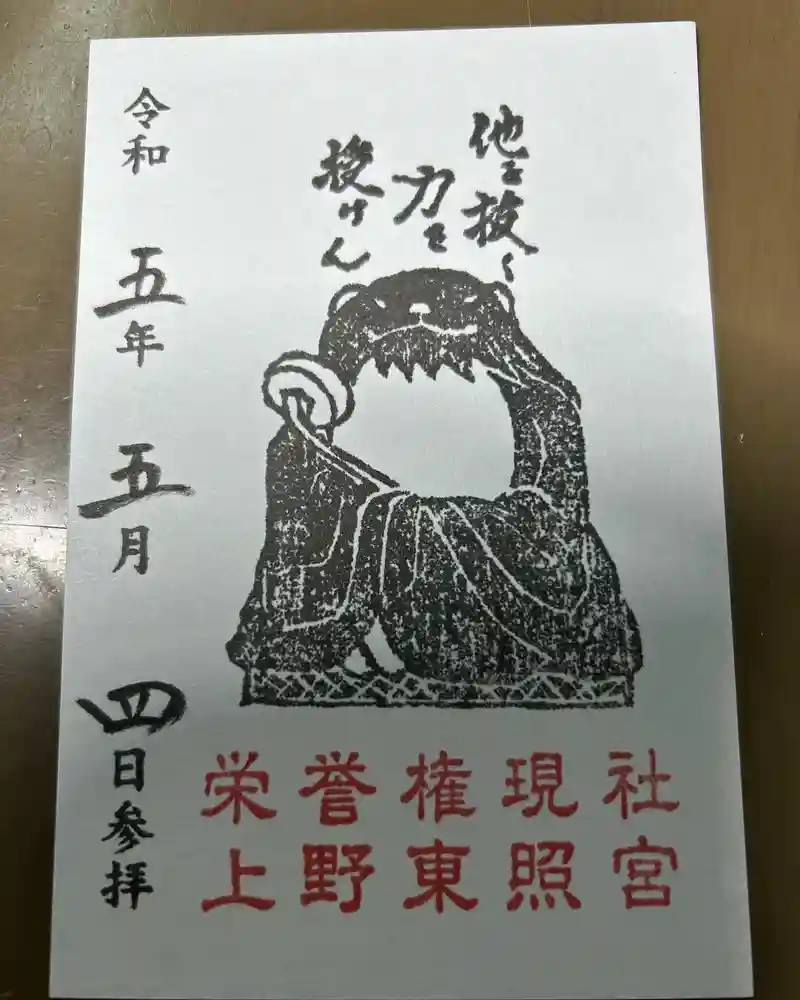 他を抜く
力を
授けん
令和 五年 五月 四日参拝
栄誉権現社
上野東照宮